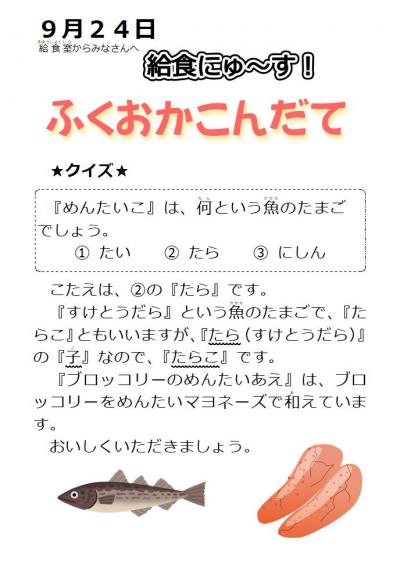 ９月２４日
給食室からみなさんへ
給食にゅ～す！
ふくおかこんだて
★クイズ★
『めんたいこ』は、何という魚のたまご
でしょう。
① たい　② たら　③ にしん
こたえは、②の『たら』です。
『すけとうだら』という魚のたまごで、『た
らこ』ともいいますが、『たら（すけとうだら）』
の『子』なので、『たらこ』です。
『ブロッコリーのめんたいあえ』は、ブロ
ッコリーをめんたいマヨネーズで和えていま
す。
おいしくいただきましょう。